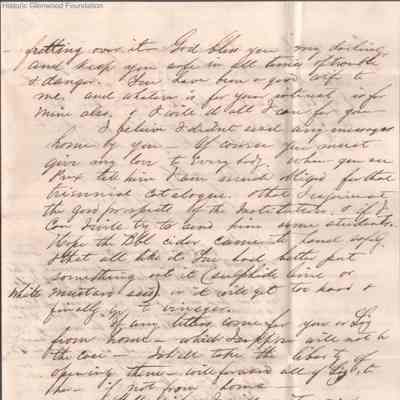 Historic Glenwood Foundation
fretting over it – God bless you my darling
and keep you safe in all times of trouble
& danger. You have been a good wife to
me, and whatever is for your interest is for
mine also, & I will do all I can for you –
I believe I didn't send any messages
home by you – Of course you must
give my love to Everybody. When you see
tell him I am much obliged for that
triennial Catalogue. & that I
the good prospects of the Institute, & if I
Can I will try to send him some students.
Hope the Bbl cider came to hand safely
& that all like it. You had better put
something out it (sulphide lime or
white mustard seed) or it will get too hard &
finally go to vinegar.
If any letters come for you or
from home – which I suppose will not be
the case – I shall take the liberty of
opening them – will forward all of to
her – if not from home –